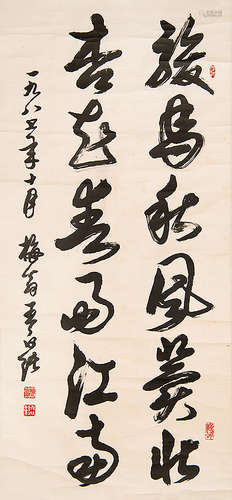 駿馬秋風冀北
杏花春雨江南
一九八五年十月 梅翁王